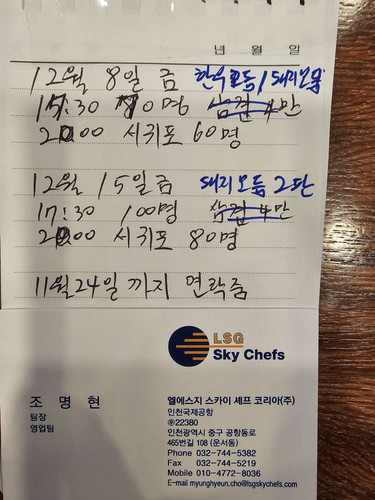 년 월 일
12월 8일 금 한우모듬/돼지모듬
17:30 70명 삼겹 4만
20:00 서귀포 60명
12월 15일 금 돼지모듬 2판
17:30 100명 삼겹 4만
20:00 서귀포 80명
11월 24일 까지 연락줌
LSG
Sky Chefs
조 명 현
팀장
영업팀
엘에스지 스카이 셰프 코리아(주)
인천국제공항
㉾22380
인천광역시 중구 공항동로
465번길 108 (운서동)
Phone 032-744-5382
Fax 032-744-5219
Mobile 010-4772-8036
E-mail myunghyeun.cho@lsgskychefs.com